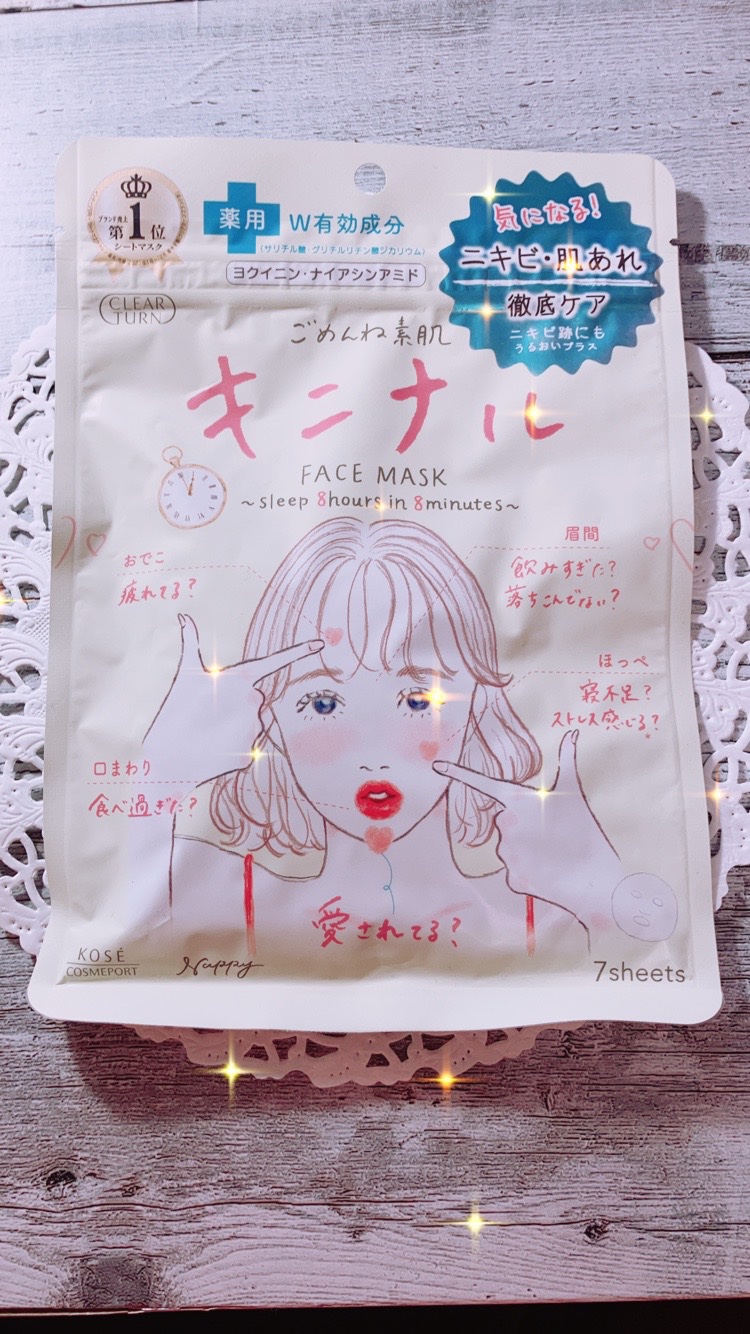 ブランド売上
第1位
シートマスク
薬用 W有効成分
(サリチル酸・グリチルリチン酸ジカリウム)
ヨクイニン・ナイアシンアミド
気になる!
ニキビ・肌あれ
徹底ケア
ニキビ跡にも
うるおいプラス
CLEAR
TURN
ごめんね素肌
キニナル
FACE MASK
~sleep 8hours in 8minutes~
おでこ
疲れてる?
眉間
飲みすぎた?
落ちこんでない?
ほっぺ
寝不足?
ストレス感じる?
口まわり
食べ過ぎた?
愛されてる?
KOSÉ
COSMEPORT
Nappy
7sheets